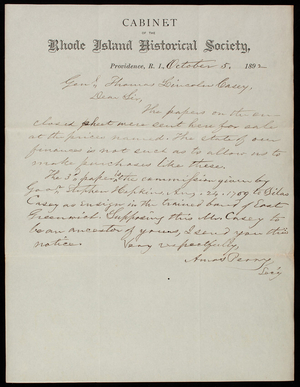 CABINET
OF THE
Rhode Island Historical Society,
Providence, R. I., October 5, 1892
Genl. Thomas Lincoln Casey,
Dear Sir,
The papers on the en-
closed sheet were sent here for sale
at the prices named. The state of our
finances is not such as to allow us to
make purchases like these.
The 3d paper, the commission given by
Gov. Stephen Hopkins, Aug. 24, 1759 to Silas
Casey as ensign in the trained band of East
Greenwich. Supposing this Mr Casey to
be an ancestor of yours, I send you this
notice. Very respectfully,
Amos Perry,
Sec'y